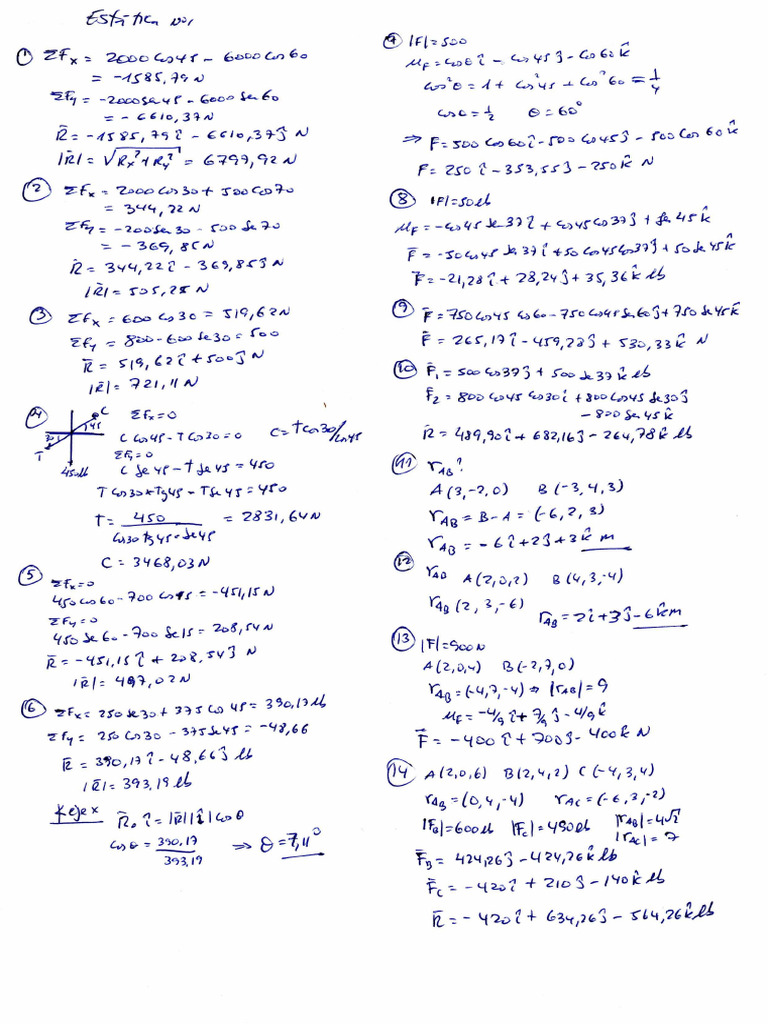 Estática No1
① ΣFx = 2000 cos45 - 6000 cos60
= -1585,79 N
ΣFy = -2000 sen45 - 6000 sen60
= -6610,37 N
R̄ = -1585,79 î - 6610,37 ĵ N
|R̄| = √(Rx² + Ry²) = 6797,92 N
② ΣFx = 2000 cos30 + 500 cos70
= 344,22 N
ΣFy = -200 sen30 - 500 sen70
= -369,85 N
R̄ = 344,22 î - 369,85 ĵ N
|R| = 505,25 N
③ ΣFx = 600 cos30 = 519,62 N
ΣFy = 800 - 600 sen30 = 500
R̄ = 519,62 î + 500 ĵ N
|R̄| = 721,11 N
④ ΣFx = 0
C
45
30
T
450lb
C cos45 - T cos30 = 0 C = T cos30/cos45
ΣFy = 0
C sen45 - T sen45 = 450
T cos30 * Tg45 - T sen45 = 450
T = 450 / (cos30 tg45 - sen45) = 2831,64 N
C = 3468,03 N
⑤ ΣFx = 0
450 cos60 - 700 cos15 = -451,15 N
ΣFy = 0
450 sen60 - 700 sen15 = 208,54 N
R̄ = -451,15 î + 208,54 ĵ N
|R̄| = 497,02 N
⑥ ΣFx = 250 sen30 + 375 cos45 = 390,17 lb
ΣFy = 250 cos30 - 375 sen45 = -48,66
R̄ = 390,17 î - 48,66 ĵ lb
|R̄| = 393,19 lb
∡ eje x R̄ · î = |R̄| |î| cosθ
cosθ = 390,17/393,19 ⇒ θ = 7,11°
⑦ |F| = 500
μF = cosθ î - cos45 ĵ - cos60 k̂
cos²θ = 1 + cos²45 + cos²60 = 1/4
cosθ = 1/2 θ = 60°
⇒ F = 500 cos60 î - 500 cos45 ĵ - 500 cos60 k̂
F = 250 î - 353,55 ĵ - 250 k̂ N
⑧ |F| = 50 lb
μF = -cos45 sen37 î + cos45 cos37 ĵ + sen45 k̂
F̄ = -50 cos45 sen37 î + 50 cos45 cos37 ĵ + 50 sen45 k̂
F̄ = -21,28 î + 28,24 ĵ + 35,36 k̂ lb
⑨ F̄ = 750 cos45 cos60 - 750 cos45 sen60 ĵ + 750 sen45 k̂
F̄ = 265,17 î - 459,28 ĵ + 530,33 k̂ N
⑩ F̄1 = 500 cos37 ĵ + 500 sen37 k̂ lb
F̄2 = 800 cos45 cos30 î + 800 cos45 sen30 ĵ
- 800 sen45 k̂
R̄ = 489,90 î + 682,16 ĵ - 264,78 k̂ lb
⑪ rAB?
A (3,-2,0) B (-3,4,3)
rAB = B - A = (-6,2,3)
rAB = -6 î + 2 ĵ + 3 k̂ m
⑫ rAB A (2,0,2) B (4,3,-4)
rAB (2, 3, -6) rAB = 2 î + 3 ĵ - 6 k̂ m
⑬ |F| = 900 N
A (2,0,4) B (-2,7,0)
rAB = (-4,7,-4) ⇒ |rAB| = 9
μF = -4/9 î + 7/9 ĵ - 4/9 k̂
F̄ = -400 î + 700 ĵ - 400 k̂ N
⑭ A (2,0,6) B (2,4,2) C (-4,3,4)
rAB = (0,4,-4) rAC = (-6,3,-2)
|FB| = 600 lb |FC| = 490 lb |rAB| = 4√2
|rAC| = 7
F̄B = 424,26 ĵ - 424,26 k̂ lb
F̄C = -420 î + 210 ĵ - 140 k̂ lb
R̄ = -420 î + 634,26 ĵ - 564,26 k̂ lb